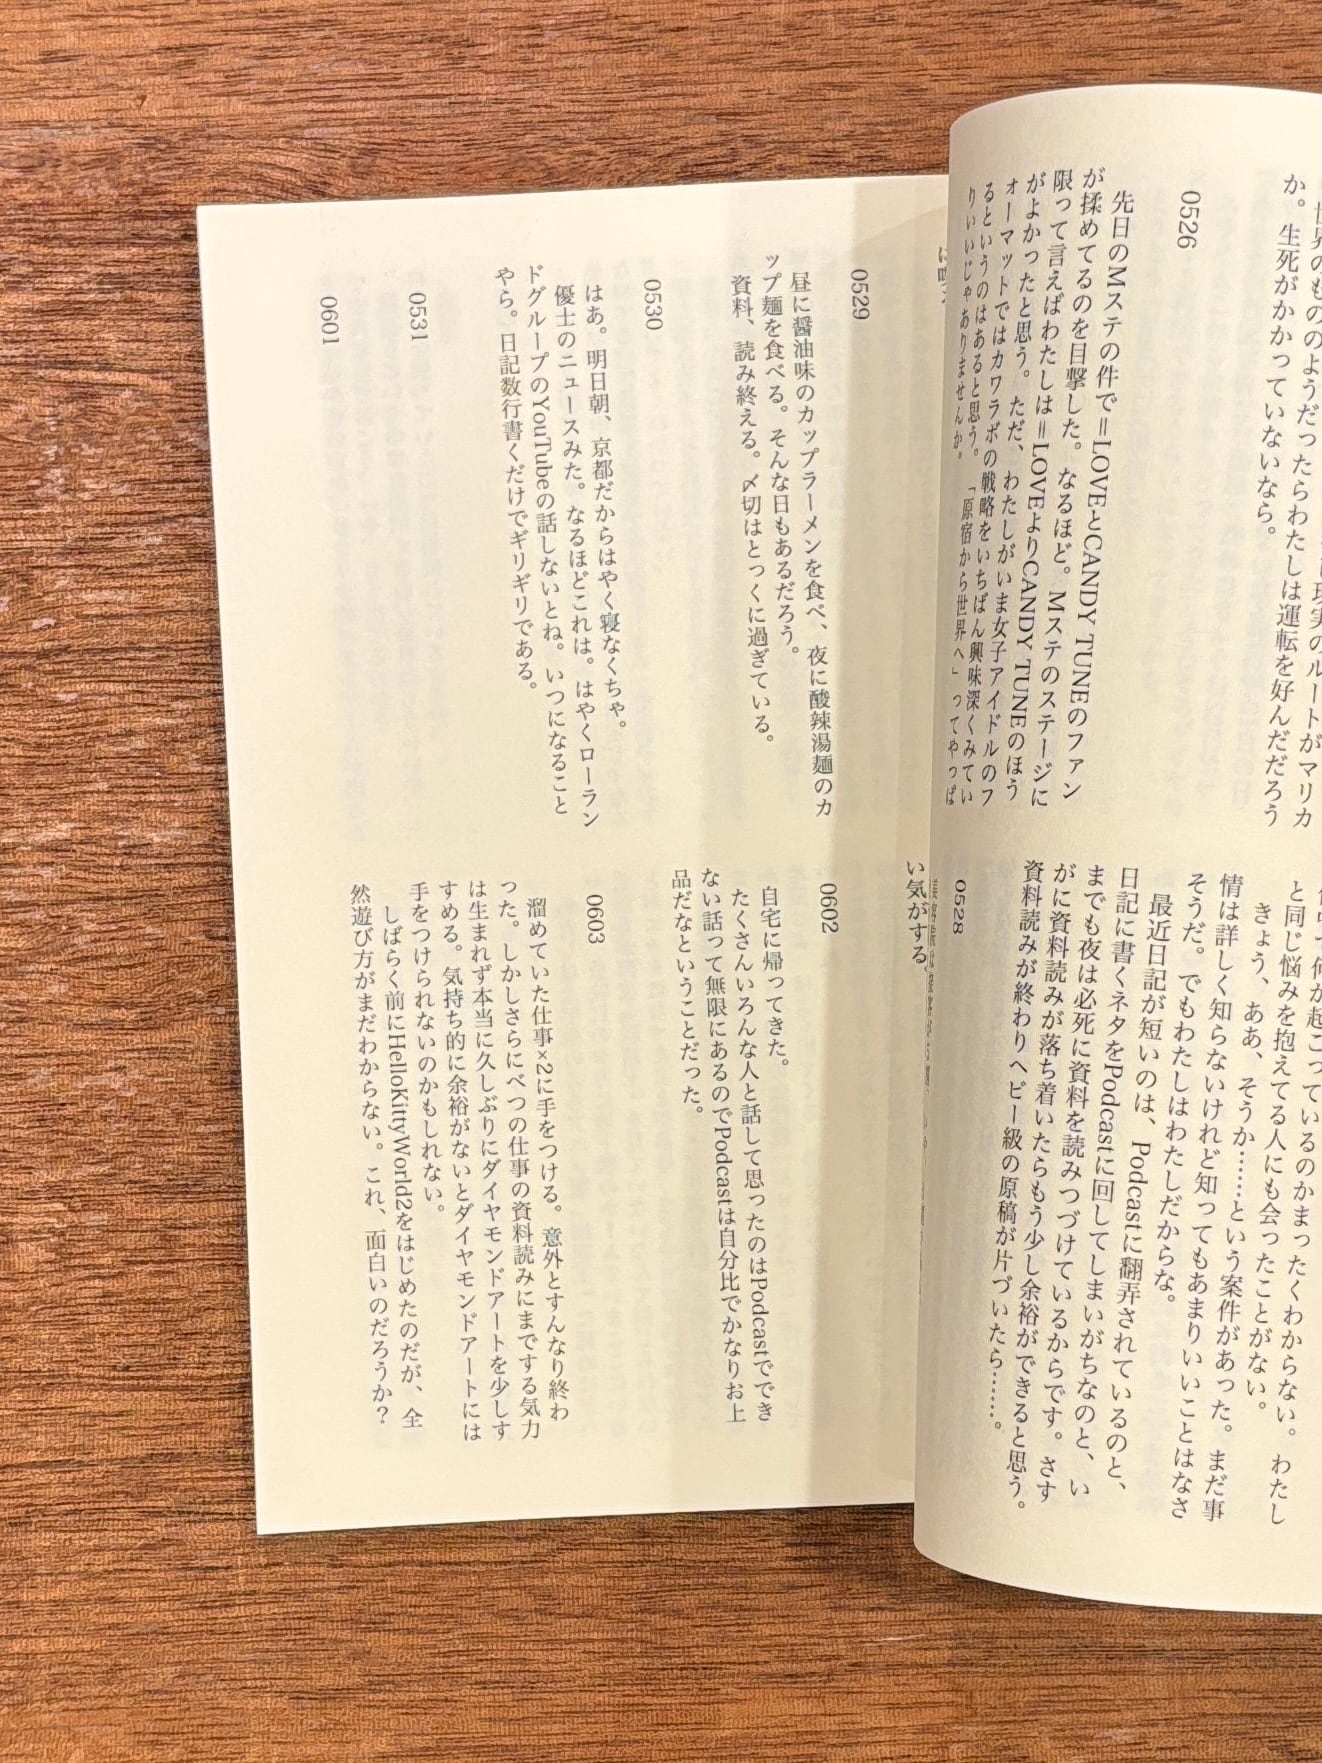 か。生死がかかっていないなら。
わたしは運転を好んだだろう
0526
先日のMステの件で＝LOVEとCANDY TUNEのファン
が揉めてるのを目撃した。なるほど。Mステのステージに
限って言えばわたしは＝LOVEよりCANDY TUNEのほう
がよかったと思う。ただ、わたしがいま女子アイドルのフ
ォーマットではカワラボの戦略をいちばん興味深くみてい
るというのはあると思う。「原宿から世界へ」ってやっぱ
りいいじゃありませんか。
と同じ悩みを抱えてる人にも会ったことがない。
きょう、ああ、そうか……という案件があった。まだ事
情は詳しく知らないけれど知ってもあまりいいことはなさ
そうだ。でもわたしはわたしだからな。
最近日記が短いのは、Podcastに翻弄されているのと、
日記に書くネタをPodcastに回してしまいがちなのと、い
までも夜は必死に資料を読みつづけているからです。さす
がに資料読みが落ち着いたらもう少し余裕ができると思う。
資料読みが終わりヘビー級の原稿が片づいたら……。
0528
い気がする。
0529
昼に醤油味のカップラーメンを食べ、夜に酸辣湯麺のカ
ップ麺を食べる。そんな日もあるだろう。
資料、読み終える。〆切はとっくに過ぎている。
0530
はあ。明日朝、京都だからはやく寝なくちゃ。
優士のニュースみた。なるほどこれは。はやくローラン
ドグループのYouTubeの話しないとね。いつになること
やら。日記数行書くだけでギリギリである。
0531
0601
0602
自宅に帰ってきた。
たくさんいろんな人と話して思ったのはPodcastででき
ない話って無限にあるのでPodcastは自分比でかなりお上
品だなということだった。
0603
溜めていた仕事×2に手をつける。意外とすんなり終わ
った。しかしさらにべつの仕事の資料読みにまでする気力
は生まれず本当に久しぶりにダイヤモンドアートを少しす
すめる。気持ち的に余裕がないとダイヤモンドアートには
手をつけられないのかもしれない。
しばらく前にHelloKittyWorld2をはじめたのだが、全
然遊び方がまだわからない。これ、面白いのだろうか？